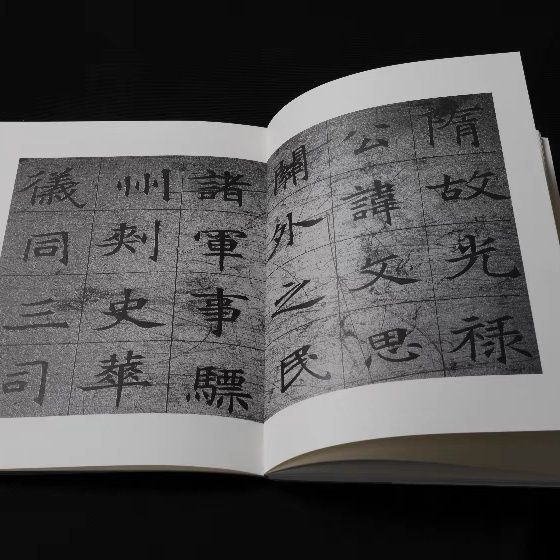 隋故光禄
公諱文思
關外之民
諸軍事驃
州刾史華
儀同三司